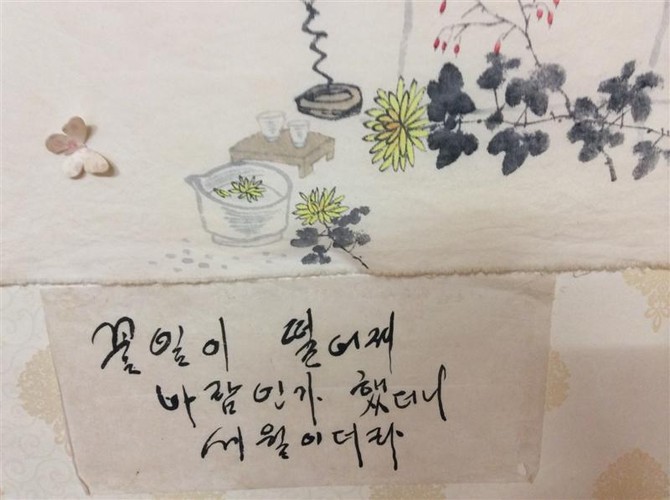 꽃잎이 떨어져
바람인가 했더니
세월이더라